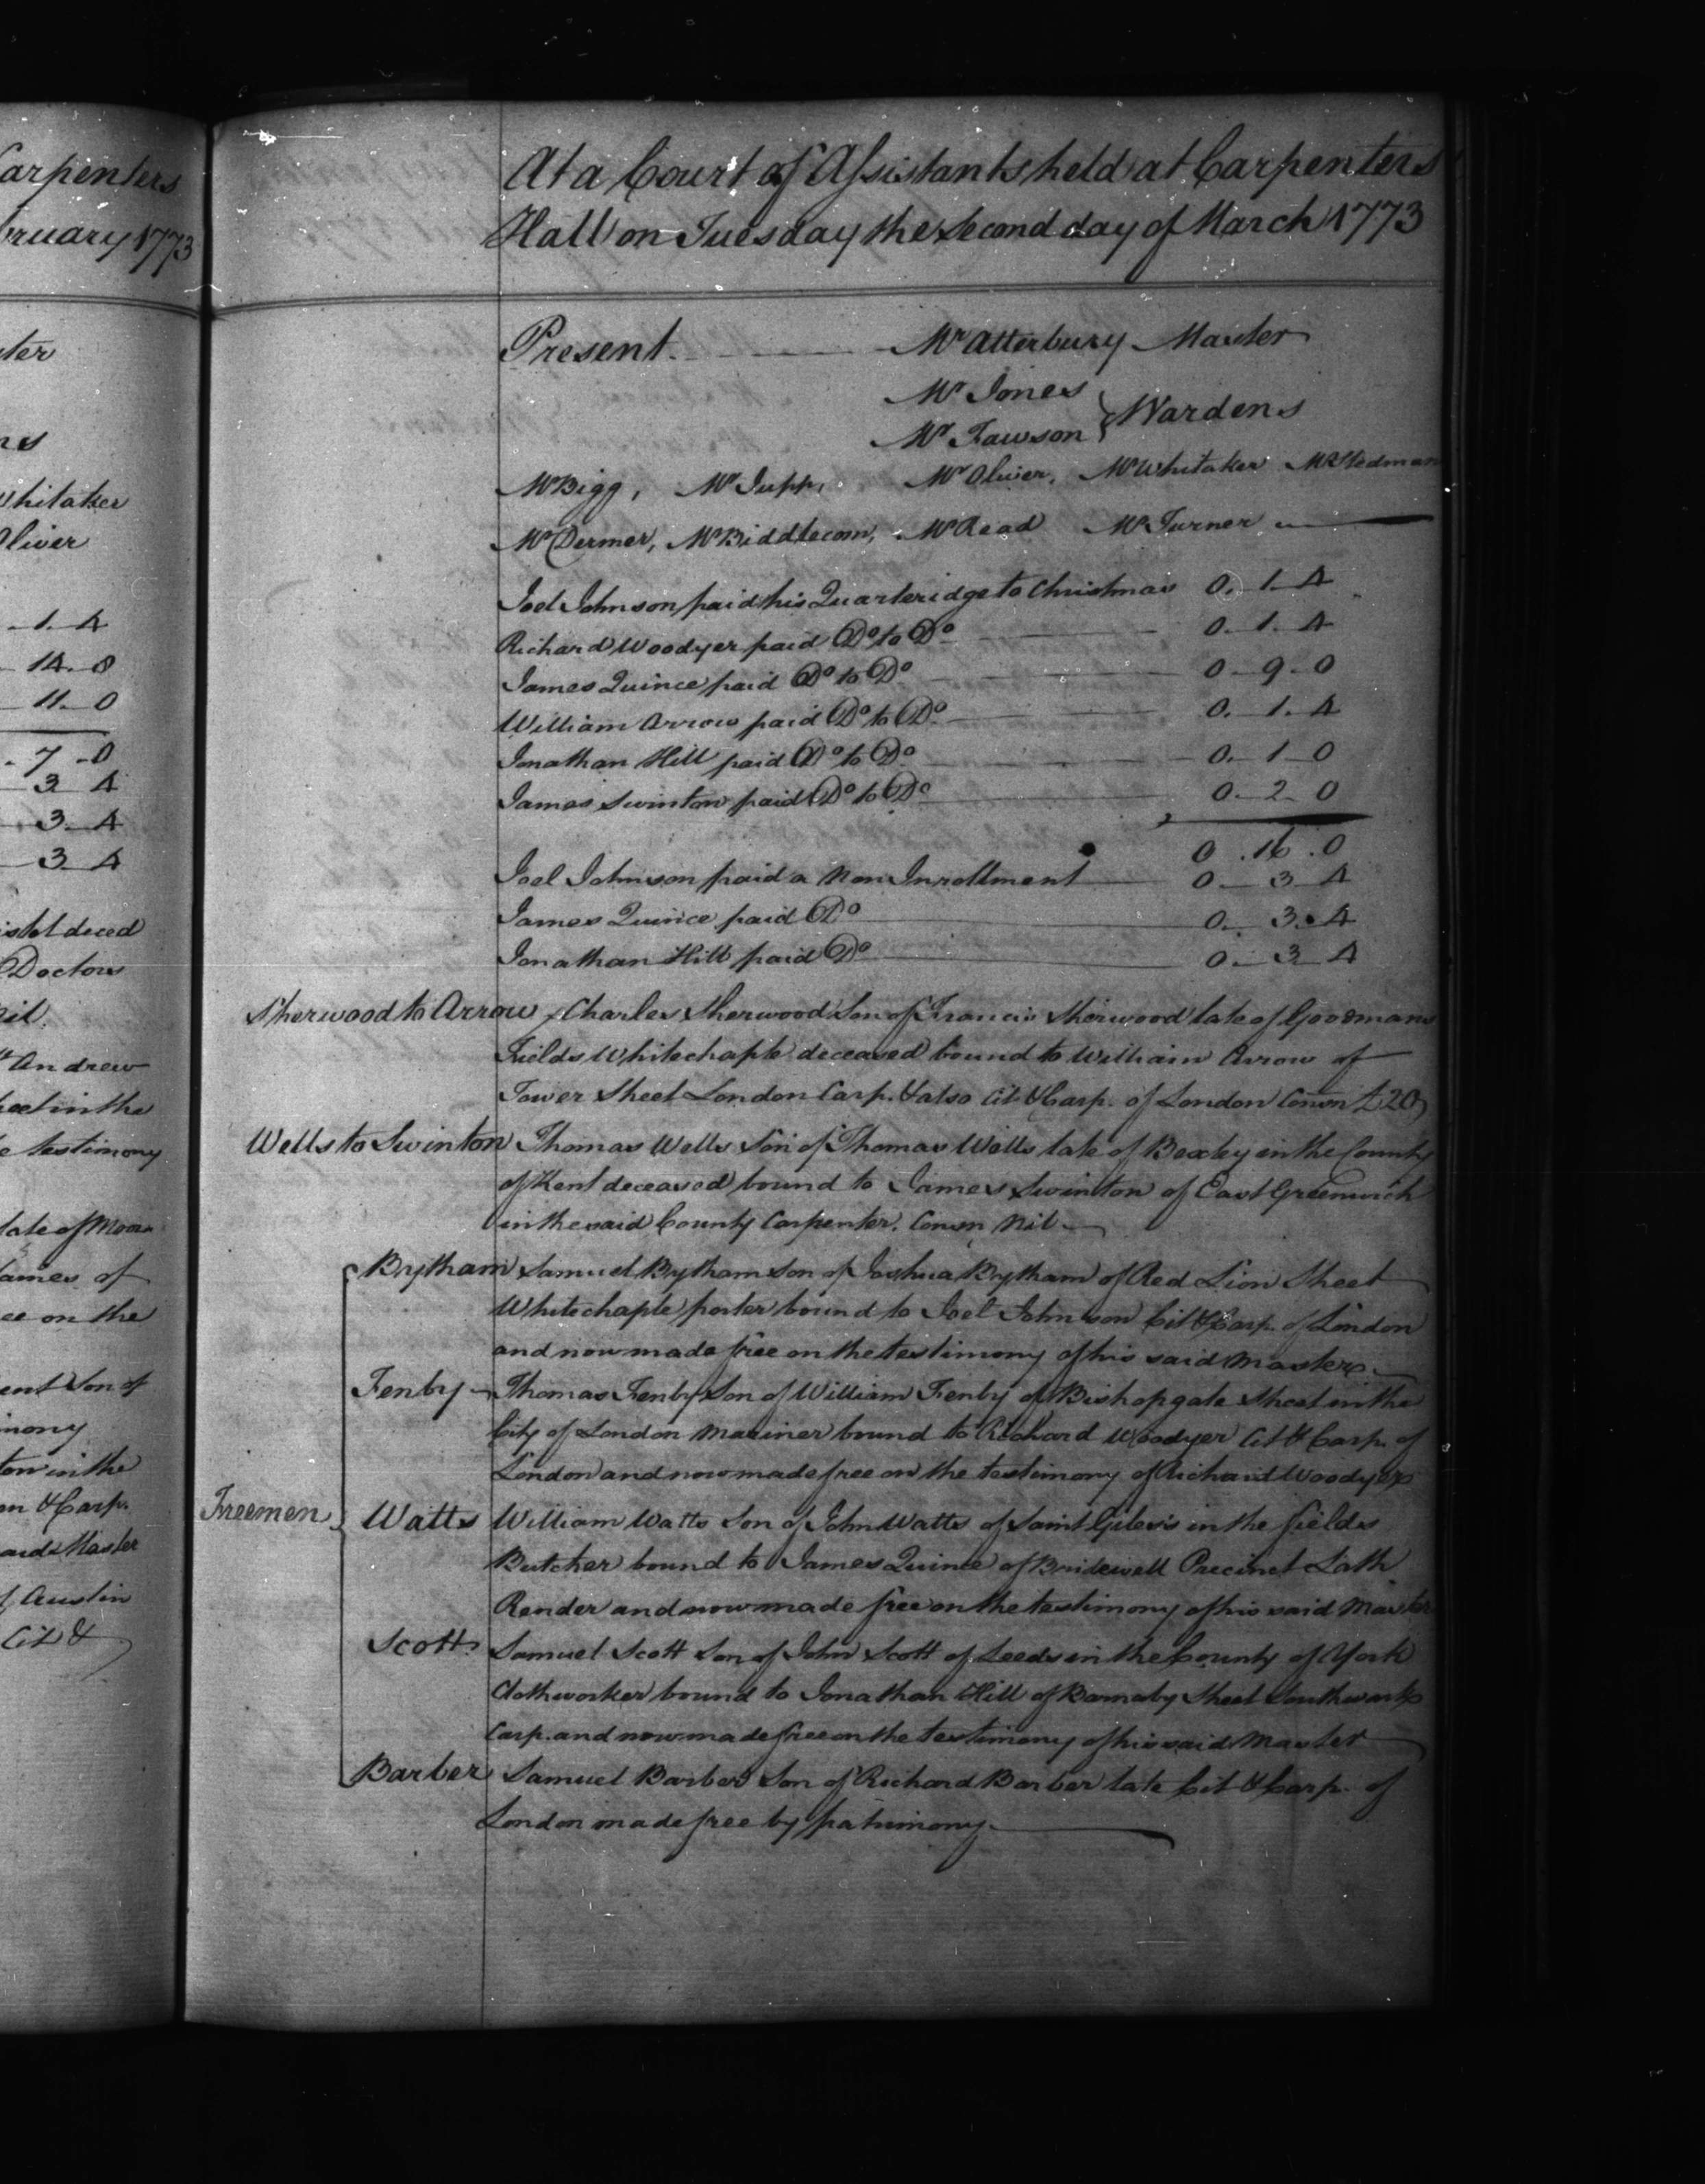 Carpenters
bruary 1773
ter
ns
Whitaker
Oliver
1. 4
14. 8
11. 0
7. 0
3. 4
3. 4
3. 4
deced
Doctors
nil.
Andrew
in the
testimony
late of Moor
James of
ce on the
ent Son of
mony
ton in the
n & Carp.
said Master
Austin
Cit &
At a Court of Assistants held at Carpenters
Hall on Tuesday the second day of March 1773
Present. Mr Atterbury Master
Mr Jones
Mr Fawson } Wardens
Mr Bigg, Mr Jupp, Mr Oliver, Mr Whitaker Mr Stedman
Mr Dermer, Mr Biddlecom, Mr Read Mr Turner
Joel Johnson paid his Quarteridge to Christmas 0. 1. 4
Richard Woodyer paid Do to Do 0. 1. 4
James Quince paid Do to Do 0. 9. 0
William Arrow paid Do to Do 0. 1. 4
Jonathan Hill paid Do to Do 0. 1. 0
James Swinton paid Do to Do 0. 2. 0
0. 16. 0
Joel Johnson paid a Non Inrollment 0. 3. 4
James Quince paid Do 0. 3. 4
Jonathan Hill paid Do 0. 3. 4
Sherwood to Arrow Charles Sherwood Son of Francis Sherwood late of Goodmans
Fields Whitechaple deceased bound to William Arrow of
Tower Street London Carp. & also Cit & Carp. of London Conson £20
Wells to Swinton Thomas Wells Son of Thomas Wells late of Bexley in the County
of Kent deceased bound to James Swinton of East Greenwich
in the said County Carpenter. Conson Nil
Brytham Samuel Brytham Son of Joshua Brytham of Red Lion Street
Whitechaple porter bound to Joel Johnson Cit & Carp. of London
and now made free on the testimony of his said Master
Fenby Thomas Fenby Son of William Fenby of Bishopgate Street in the
City of London Mariner bound to Richard Woodyer Cit & Carp. of
London and now made free on the testimony of Richard Woodyer
Freemen Watts William Watts Son of John Watts of Saint Giles's in the fields
Butcher bound to James Quince of Bridewell Precinct Lath
Render and now made free on the testimony of his said Master
Scott Samuel Scott Son of John Scott of Leeds in the County of York
Clothworker bound to Jonathan Hill of Barnaby Street Southwark
Carp. and now made free on the testimony of his said Master
Barber Samuel Barber Son of Richard Barber late Cit & Carp. of
London made free by patrimony.